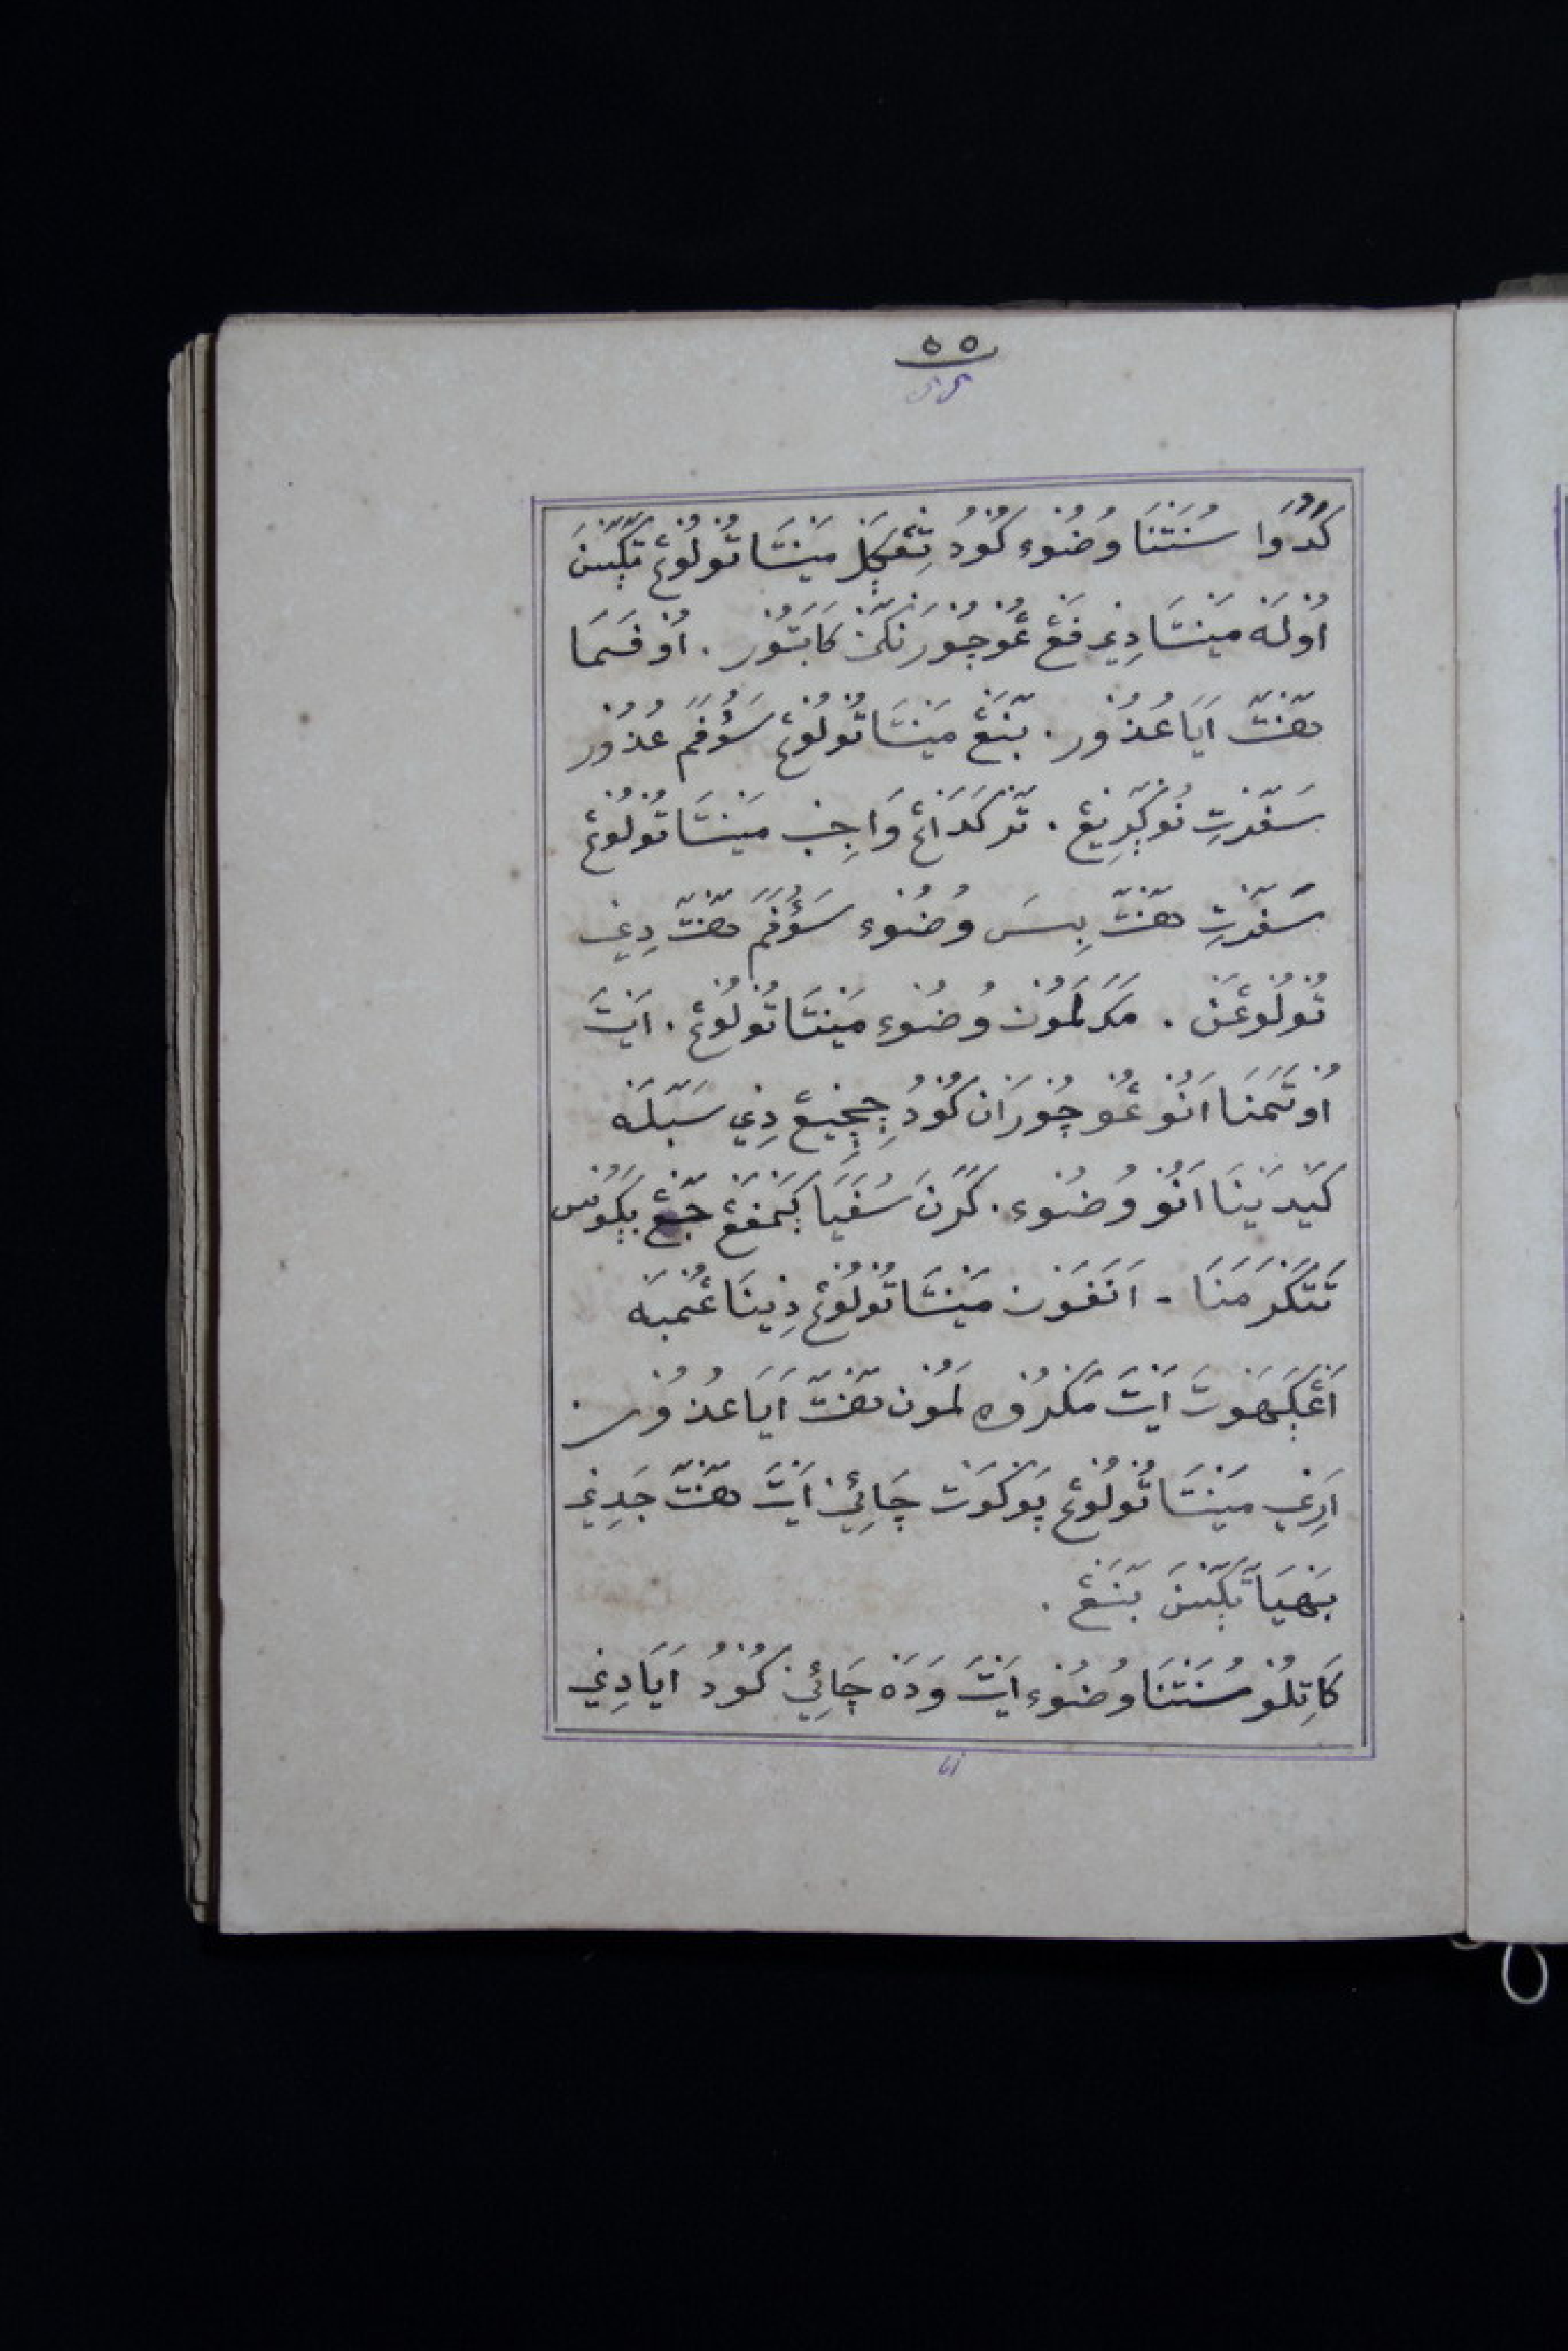 ٥٥
55
كَدُوَا سُنَتْنَا وُضُوْء كُوْدُ تِڠْڮَلْ مَيْنْتَا تُوْلُوْڠْ تٓكٓسْنَ
اُوْلَهْ مَيْنْتَا دِيْ فَڠْ ڠُوْچُوْرَنْكٓنْ كَا بَتُوْر . اُوْفَمَا
هٓنْتٓ اَيَا عُذُوْر . بٓنَڠْ مَيْنْتَا تُوْلُوْڠْ سَؤُفَمَ عُذُوْر
سَفٓرْتِ نُوْكٓرِيْڠْ . تٓرْكَدَڠْ وَاجِبْ مَيْنْتَا تُوْلُوْڠْ
سَفٓرْتِ هٓنْتٓ بِسَ وُضُوْء سَؤُفَمَ هٓنْتٓ دِيْ
تُوْلُوْڠَنْ . مَكَ لَمُوْنْ وُضُوْء مَيْنْتَا تُوْلُوْڠْ . اَيْتَ
اُوْتَمَنَا اَنُوْ ڠُوْچُوْرَانْ كُوْدُ چِچِيْڠْ دِيْ سَبٓلَه
كَيْدَيْنَا اَنُوْ وُضُوْء . كَرَنَ سُفَيَا ڮَمْفَڠْ جٓڠْ بَڮُوْس
تَتَكْرَمَنَا - اَنَفَوْن مَيْنْتَا تُوْلُوْڠْ دِيْنَا ڠُمْبَه
اَڠْڮَهَوْتَ اَيْتَ مَكْرُوْه لَمُوْن هٓنْتٓ اَيَا عُذُوْر
اَرِيْ مَيْنْتَا تُوْلُوْڠْ پَوْكَوْتْ چَائِيْ اَيْتَ هٓنْتٓ جَدِيْ
بَهْيَا تٓكٓسْنَ بٓنَڠْ .
كَاتِلُوْ سُنَتْنَا وُضُوْء اَيْتَ وَدَهْ چَائِيْ كُوْدُ اَيَا دِيْ